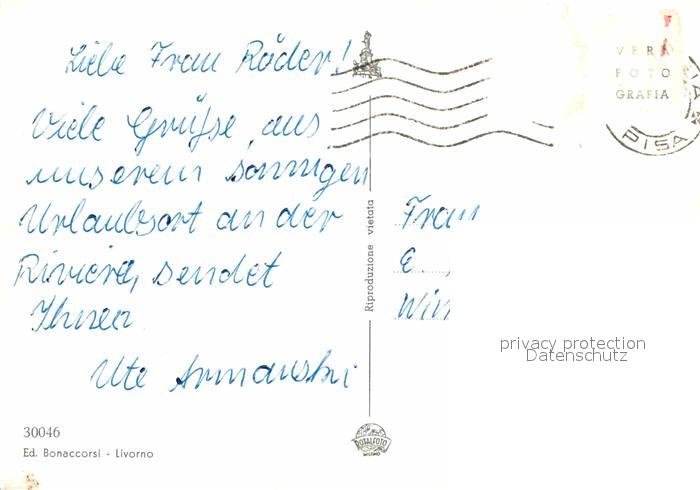 Liebe Frau Röder!
Viele Grüße aus
unserem sonnigen
Urlaubsort an der
Riviera, sendet
Ihnen
Ute Armanski
VERA
FOTO
GRAFIA
PISA
Riproduzione vietata
Frau
E
Win
privacy protection
Datenschutz
30046
Ed. Bonaccorsi - Livorno
ROTALFOTO
MILANO